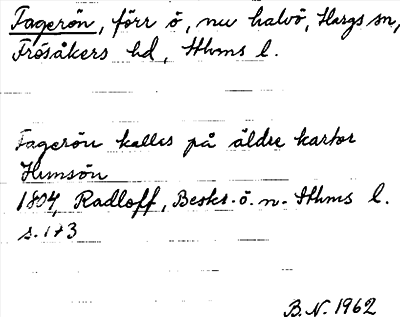 Fagerön, förr ö, nu halvö, Hargs sn,
Frösåkers hd, Sthms l.
Fagerön kalles på äldre kartor
Hunsön
1804, Radloff, Beskr. ö. n. Sthms l.
s. 173
B.N. 1962